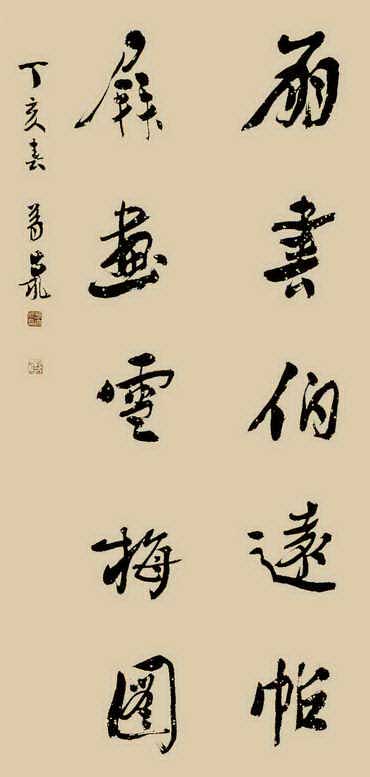 扇書伯遠帖
屏畫雪梅圖
丁亥春